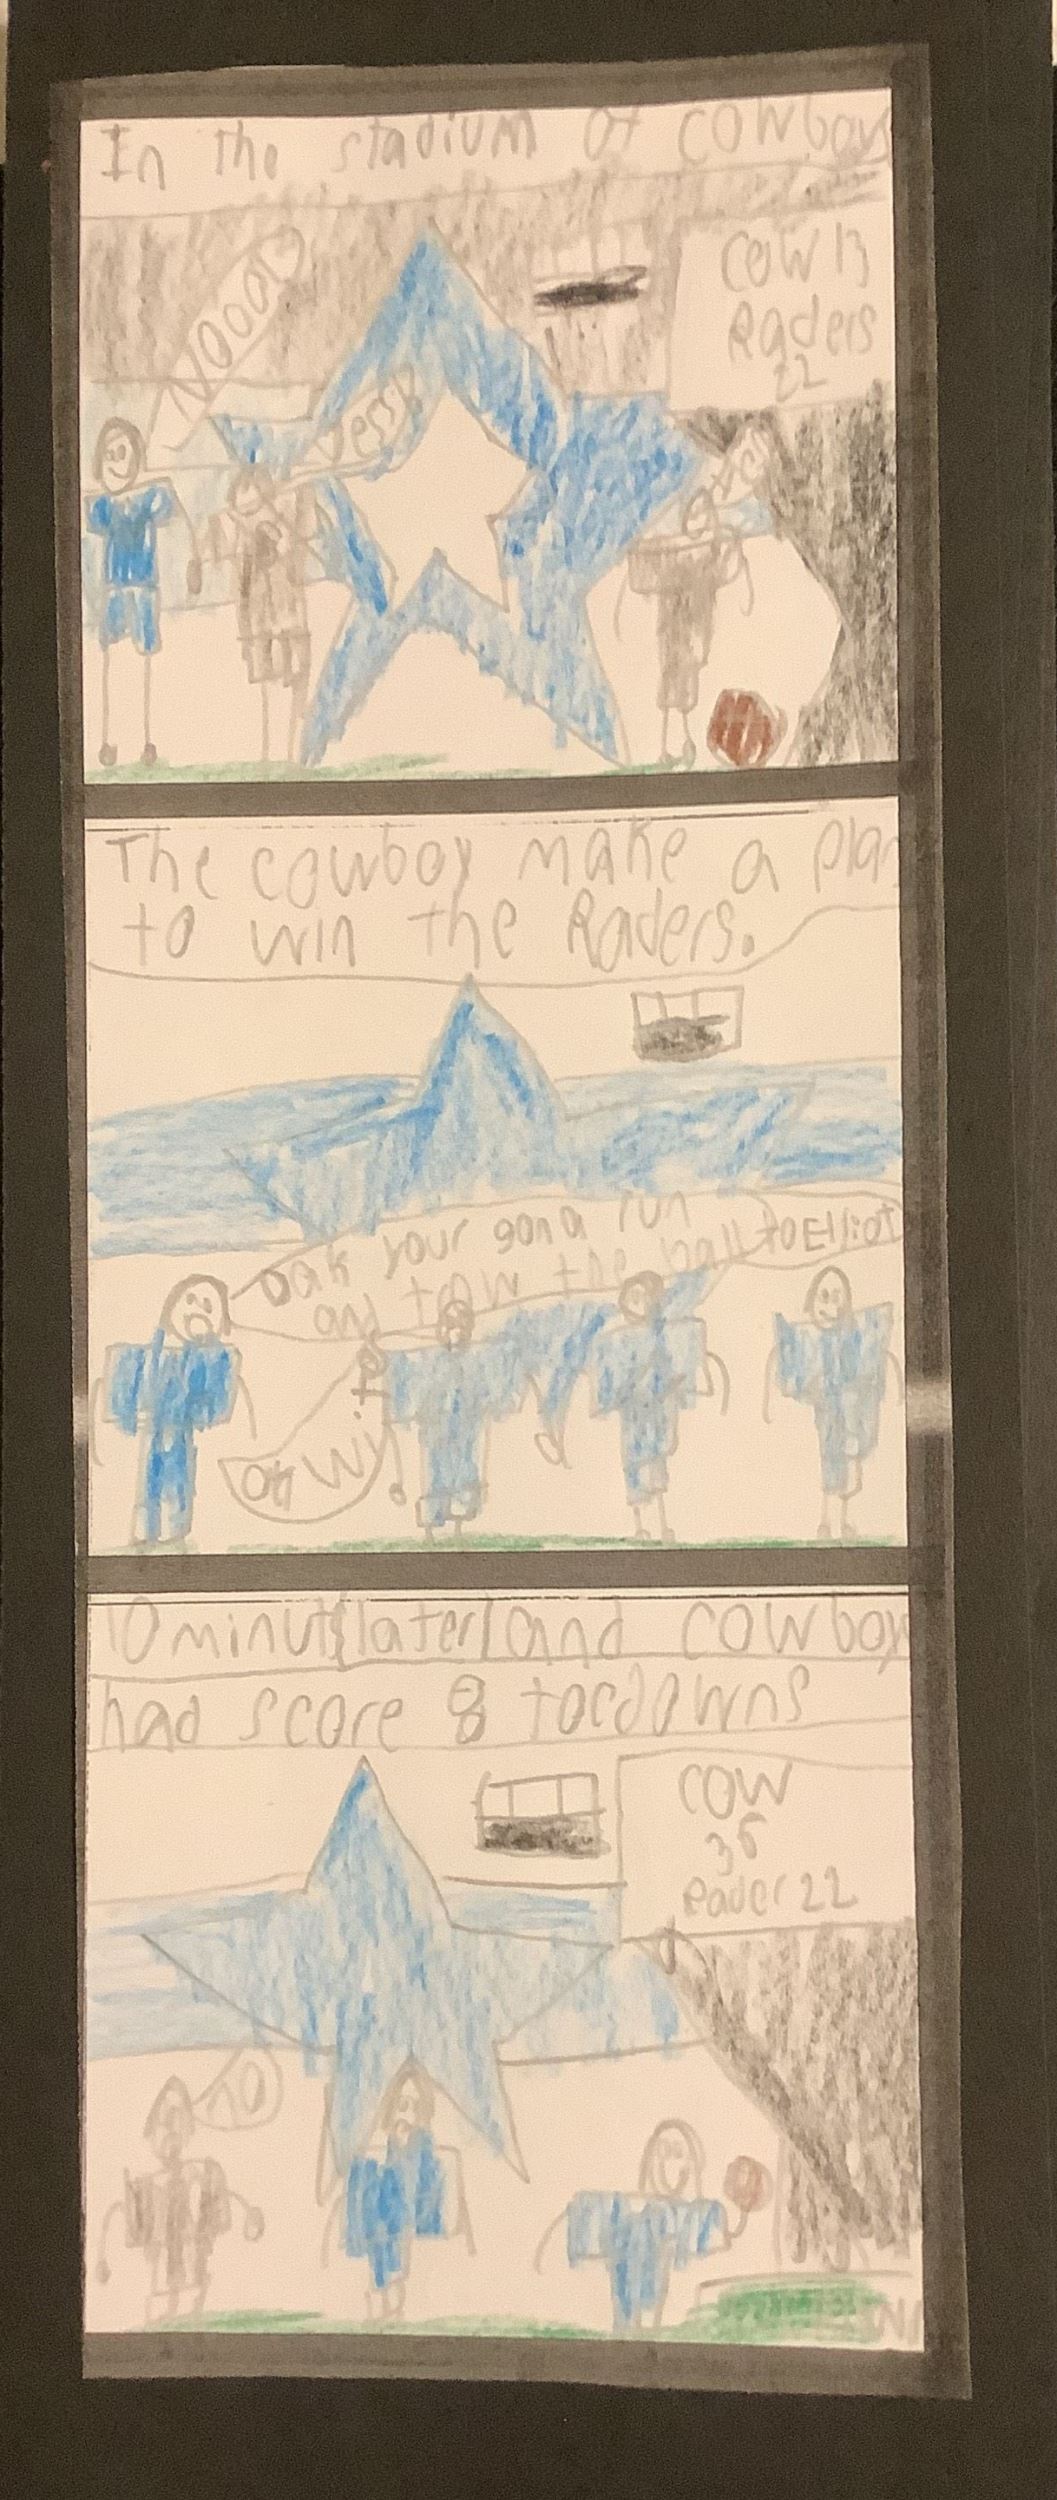 In the stadium of cowboys
COW 13
Raders
22
Noooo
yesss
yes
The cowboy make a plan
to win the Raders.
oak your gona run
and trow the ball to Elliot
ok wi
10 minuts later and cowboy
had score 8 tocdowns
COW
36
Rader 22
NO